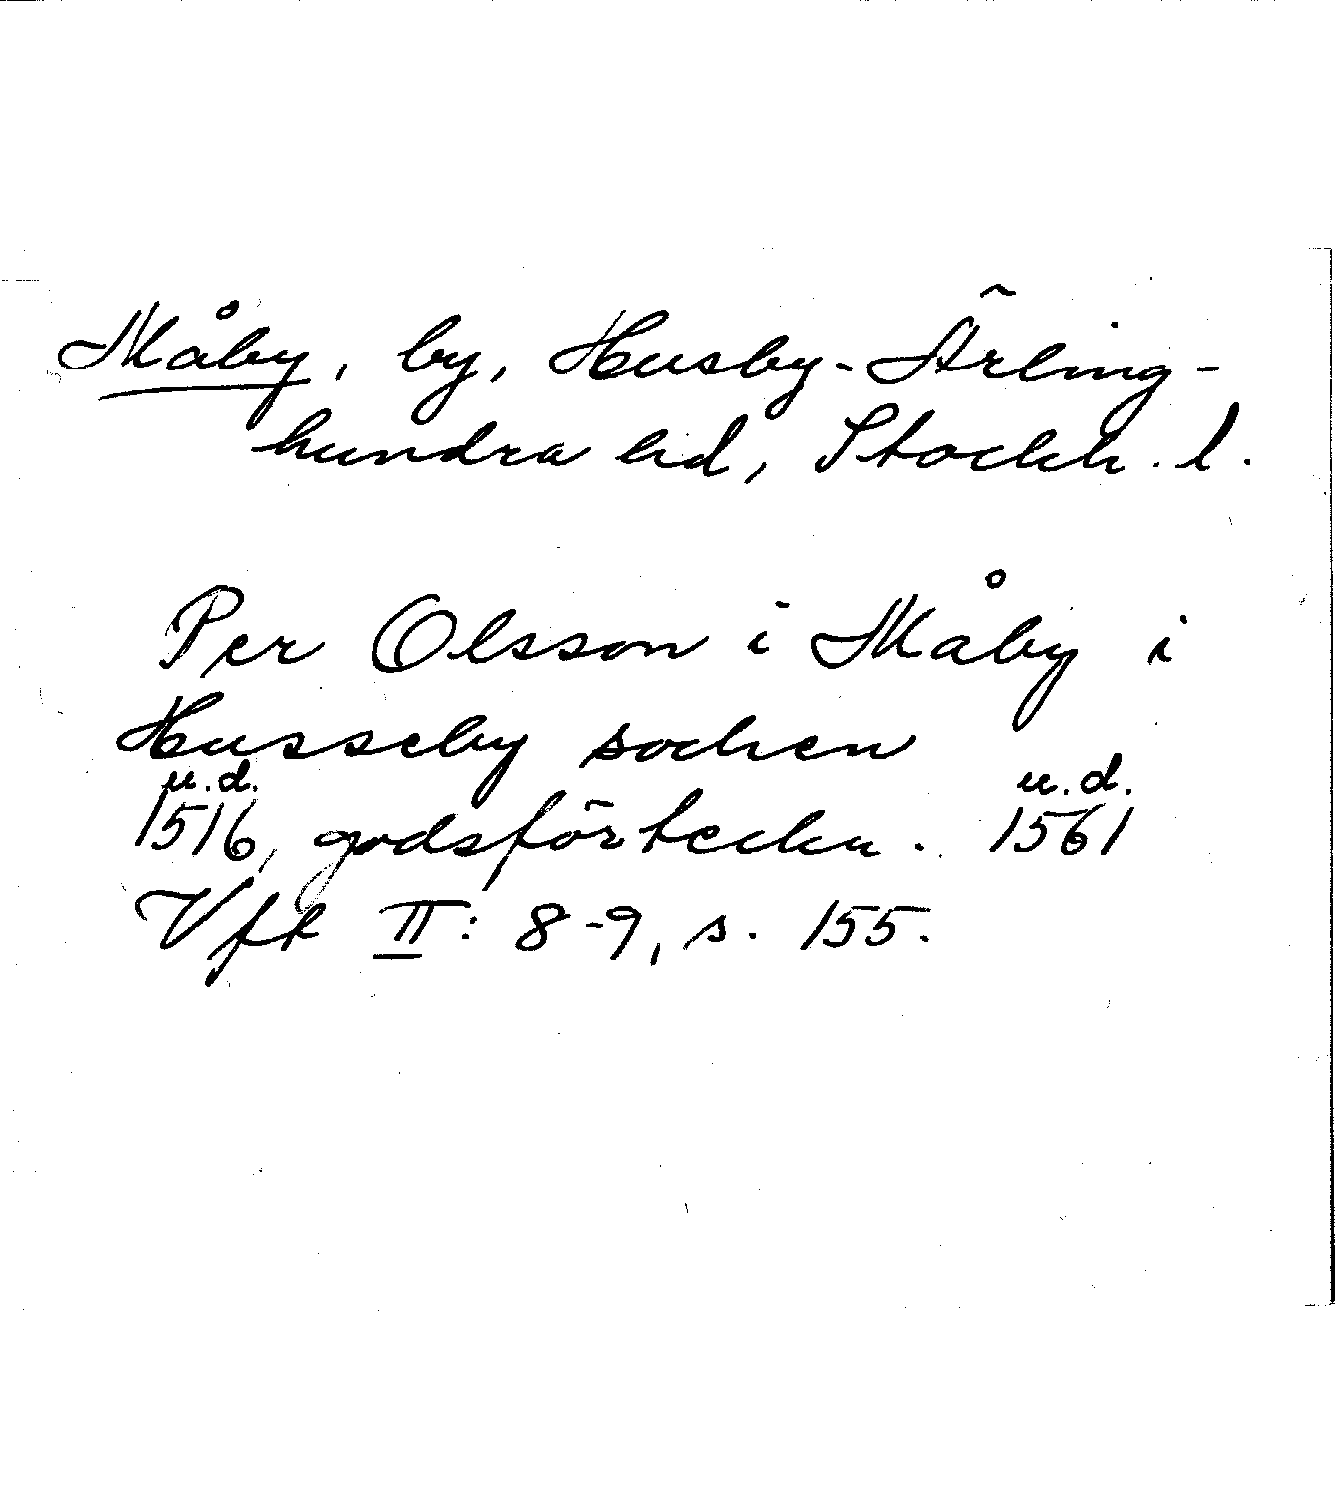 Måby, by, Husby-Ärling-
hundra hd, Stockh. l.
Per Olsson i Måby i
Husseby sochen
u.d. u.d.
1516, godsförteckn. 1561
Vfk II: 8-9, s. 155.